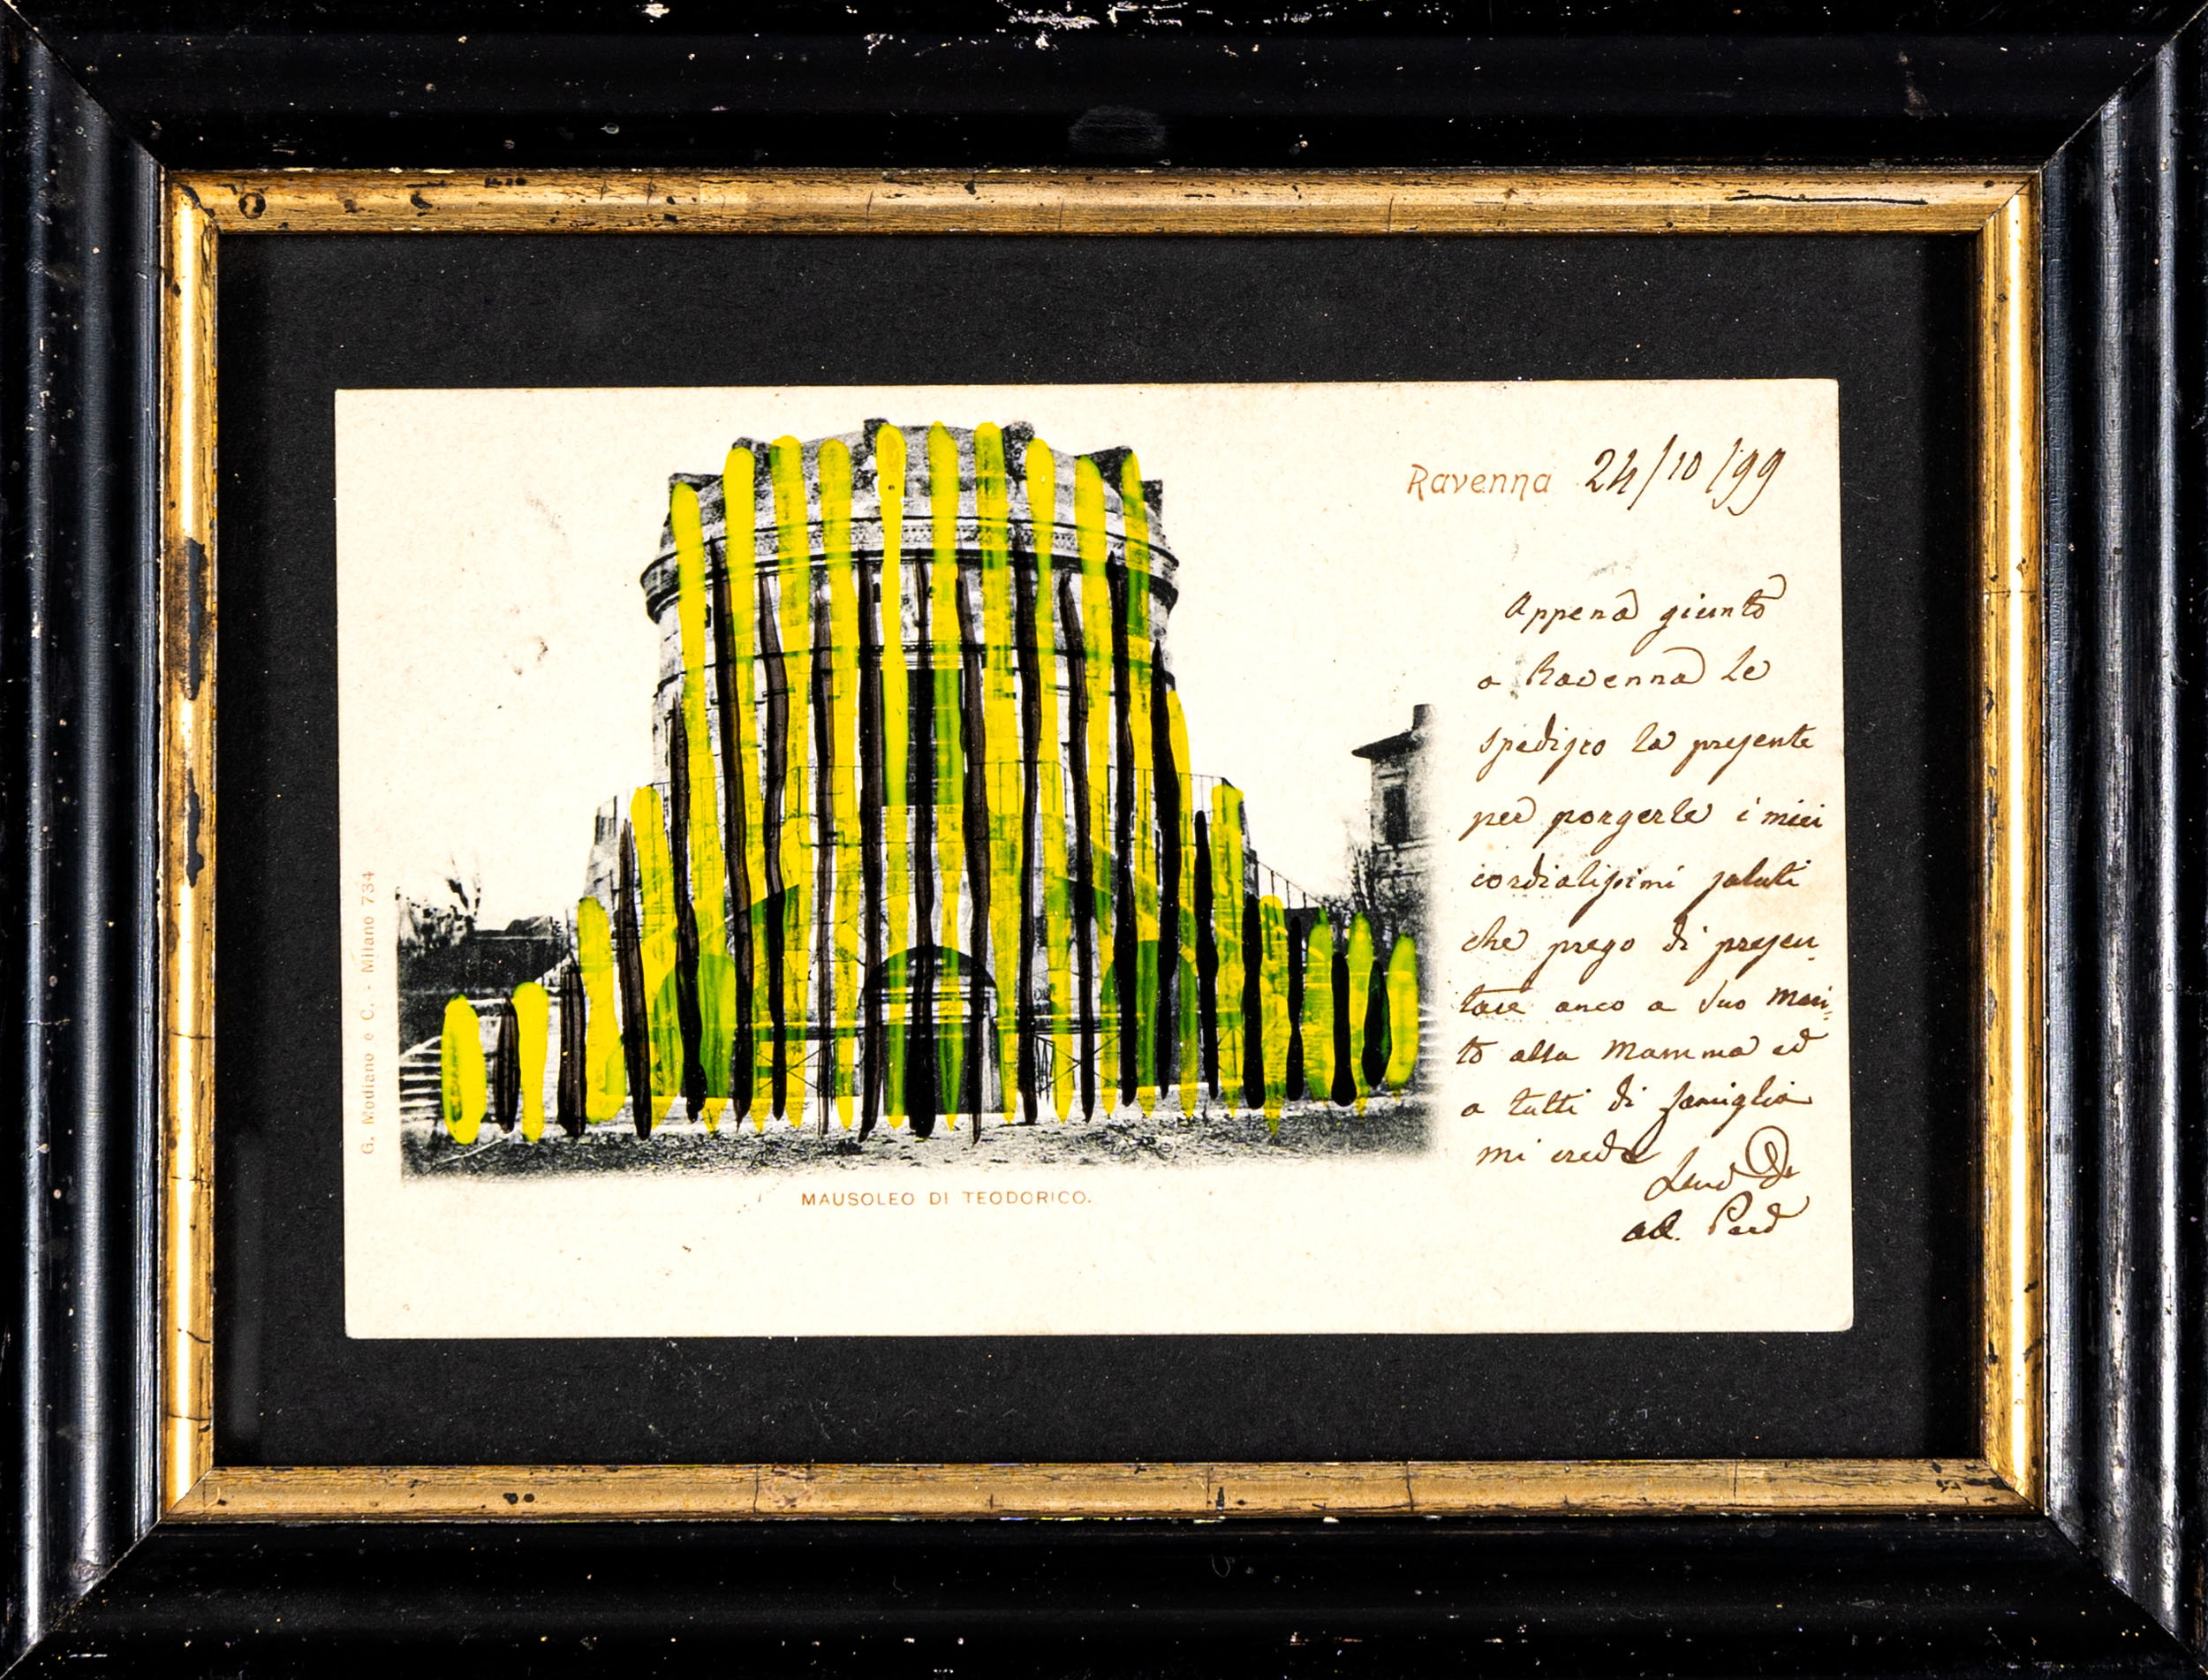 Ravenna 24/10/99
Appena giunto
a Ravenna Le
spedisco la presente
per porgerle i miei
cordialissimi saluti
che prego di presen-
tare anco a Suo Mari-
to alla Mamma ed
a tutti di famiglia
mi creda
G. Modiano e C. - Milano 734
MAUSOLEO DI TEODORICO.